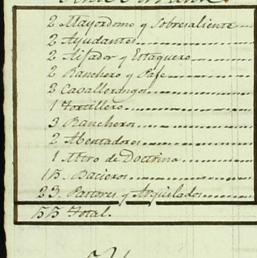 2 Mayordomo y Sobresaliente
2 Ayudante
2 Aijador y Estaquero
2 Ranchero y
3 Cavallerangos
1 Tortillero
3 Rancheros
2 Ahentadores
1 Mtro de Doctrina
15. Bacieros
23. Pastores y
55 Total.